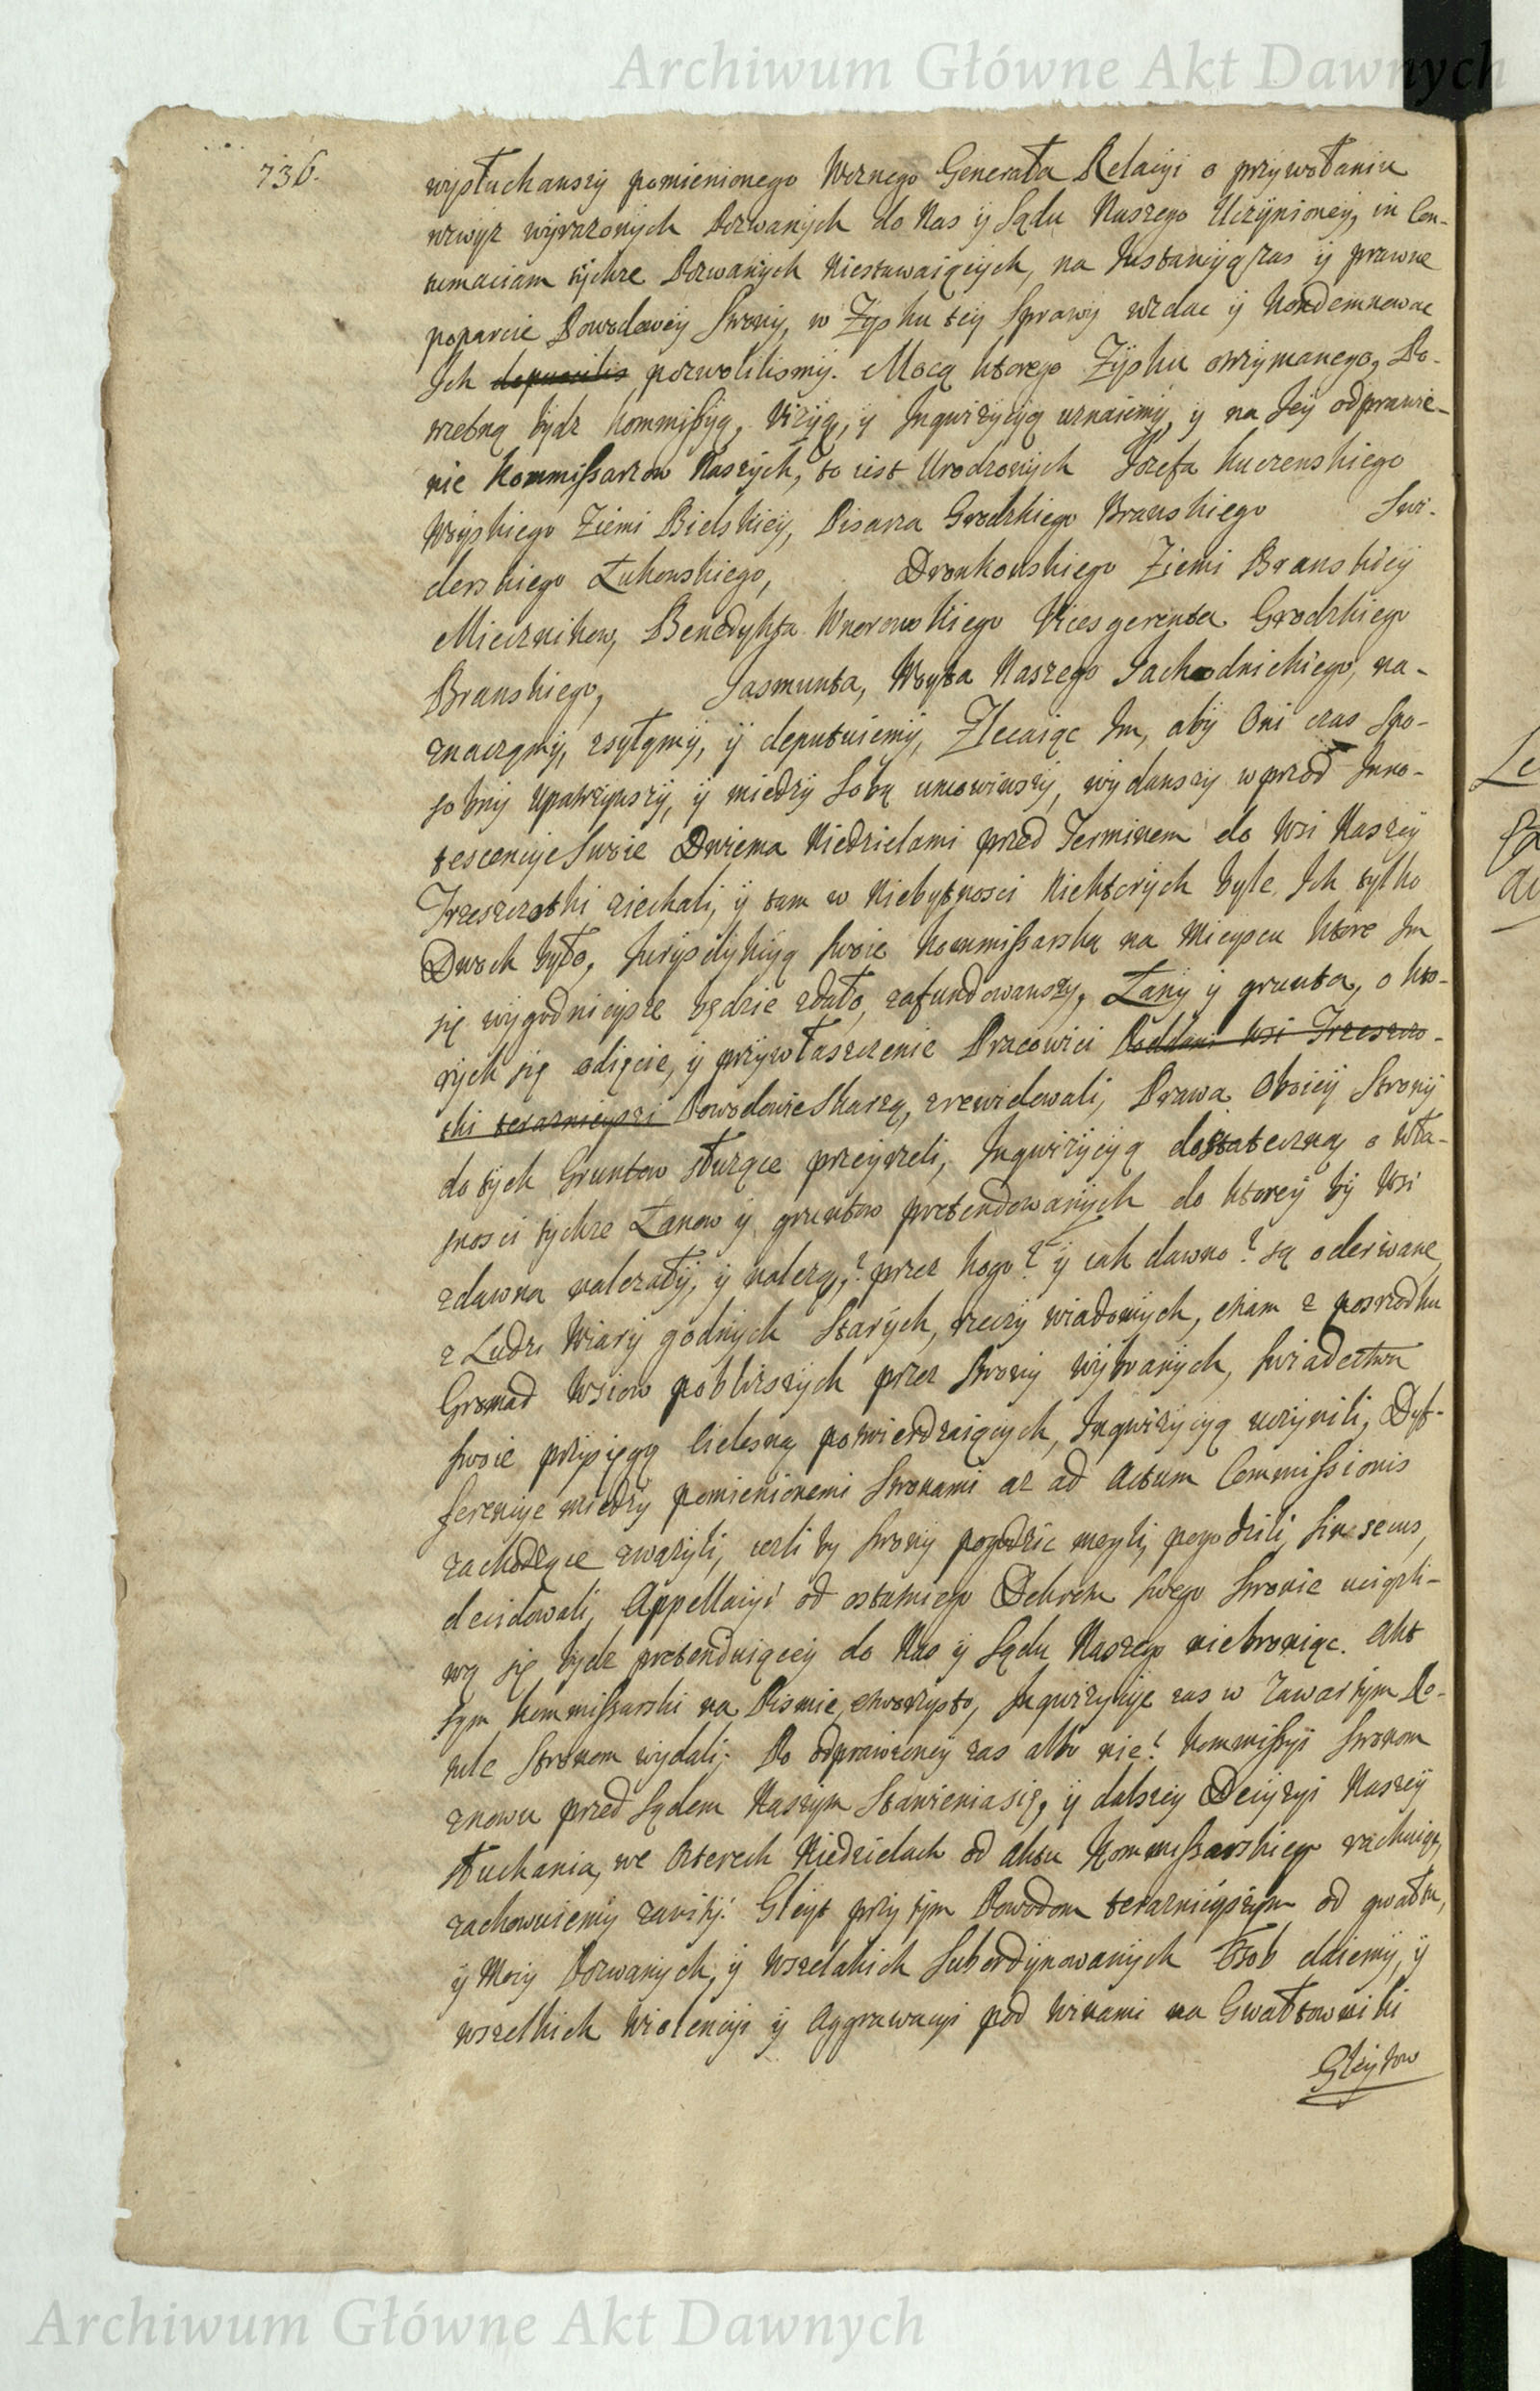 Archiwum Główne Akt Dawnych
736.
wysłuchawszy pomienionego Woznego Generała Relacyi o przywołaniu
wzwyż wyrazonych Pozwanych do Nas y Sądu Naszego Uczynioney, in Con-
tumaciam tychże Pozwanych Niestawaiących, na Instancyą zas y prawne
poparcie Powodowey Strony, w Zysku tey Sprawy wzdac y Kondemnowac
Ich pozwolilismy. Mocą ktorego Zysku otrzymanego, Po-
trzebną bydz Kommissyą, Wizyą, y Inquizycyą uznaiemy, y na Iey odprawie-
nie Kommissarzow Naszych, to iest Urodzonych Jozefa Kuczenskiego
Woyskiego Ziemi Bielskiey, Pisarza Grodzkiego Branskiego Swi-
derskiego Łukowskiego, Dronkowskiego Ziemi Branskiey
Miecznikow, Benedykta Wnorowskiego Vicesgerenta Grodzkiego
Branskiego, Jasmunta, Woyta Naszego Zachodnickiego, na-
znaczymy, zsyłamy, y deputuiemy, Zlecaiąc Im, aby Oni czas spo-
sobny Upatrzywszy, y miedzy sobą umowiwszy, wydawszy wprzod Inno-
tescencye Swoie Dwiema Niedzielami przed Terminem do Wsi Naszey
Trzeszczotki ziechali, y tam w Niebytnosci Niektorych byle Ich tylko
Dwoch było, Juryzdykcyą swoie Kommissarską na Mieyscu ktore Im
się wygodnieysze będzie zdało, zafundowawszy, Łany y grunta, o kto-
rych się odięcie, y przywłaszczenie Pracowici Poddani Wsi Trzeszczo-
tki teraznieysi Powodowie Skarzą, zrewidowali, Prawa Oboiey Strony
do tych Gruntow służące przeyrzeli, Inquizycyą dostateczną o wła-
snosci tychże Łanow y gruntow pretendowanych do ktorey by Wsi
zdawna nalezały, y nalezą,? przez kogo? y iak dawno? są oderwane,
z Ludzi Wiary godnych Starych, rzeczy wiadomych, etiam z posrzodku
Gromad Wsiow pobliższych przez Strony wybranych, swiadectwa
swoie przysięgą cielesną potwierdzaiących, Inquizycyą uczynili, Dyf-
ferencye miedzy pomienionemi Stronami az ad Actum Commissionis
zachodzące zwazyli, iezli by Strony pogodzic mogli, pogodzili, sin secus,
decidowali, Appellacyi od ostatniego Dekretu swego Stronie uciązli-
wą się bydz pretenduiącey do Nas y Sądu Naszego niebroniąc. Akt
sam Kommissarski na Pismie otworzysto, Inquizycye zas w zawartym Ro-
tule Stronom wydali. Po odprawioney zas albo nie? Kommissyi Stronom
znowu przed Sądem Naszym Stawienia się, y dalszey Decyzyi Naszey
słuchania, we czterech Niedzielach od aktu Kommissarskiego rachuiąc,
zachowuiemy zawity. Gleyt przy tym Powodom teraznieyszym od gwałtu,
y Mocy Pozwanych, y wszelakich Subordynowanych Osob daiemy, y
wszelkich Wiolencyi y Aggrawacyi pod Winami na Gwałtowniki
Gleytow
Archiwum Główne Akt Dawnych